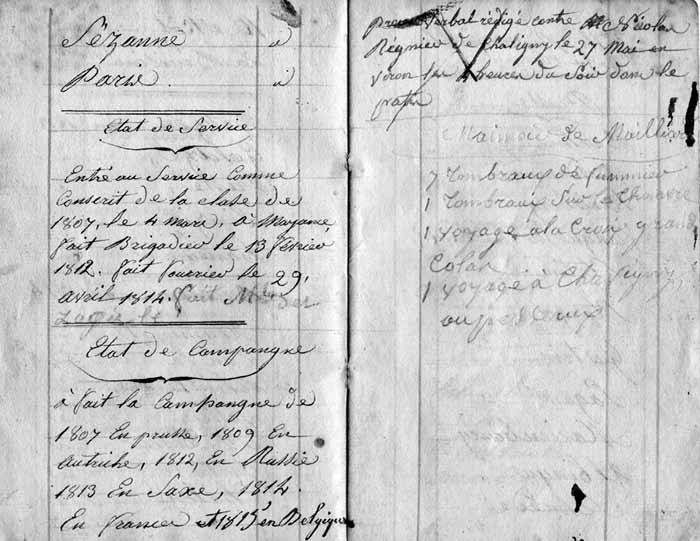 Sézanne à
Paris à
Etat de Service
Entré au Service Comme
Conscrit de la clase de
1807, le 4 mars, à Mayance
fait Brigadier le 13 fevrier
1812. fait fourrier le 29,
avril 1814. fait
Etat de Campangne
à fait la Campangne de
1807 En prusse, 1809 En
Autriche, 1812, En Russie
1813 En Saxe, 1814.
En france et 1815 en Belgique
verbal rédigé contre Nicolas
Régnier de Chaligny le 27 Mai en
viron les heures du Soir dans le
Mémoire de
7 Tombraux de fummier
1 Tombraux Sur le Chanvre
1 voyage a la Croix
Colas
1 voyage à
au